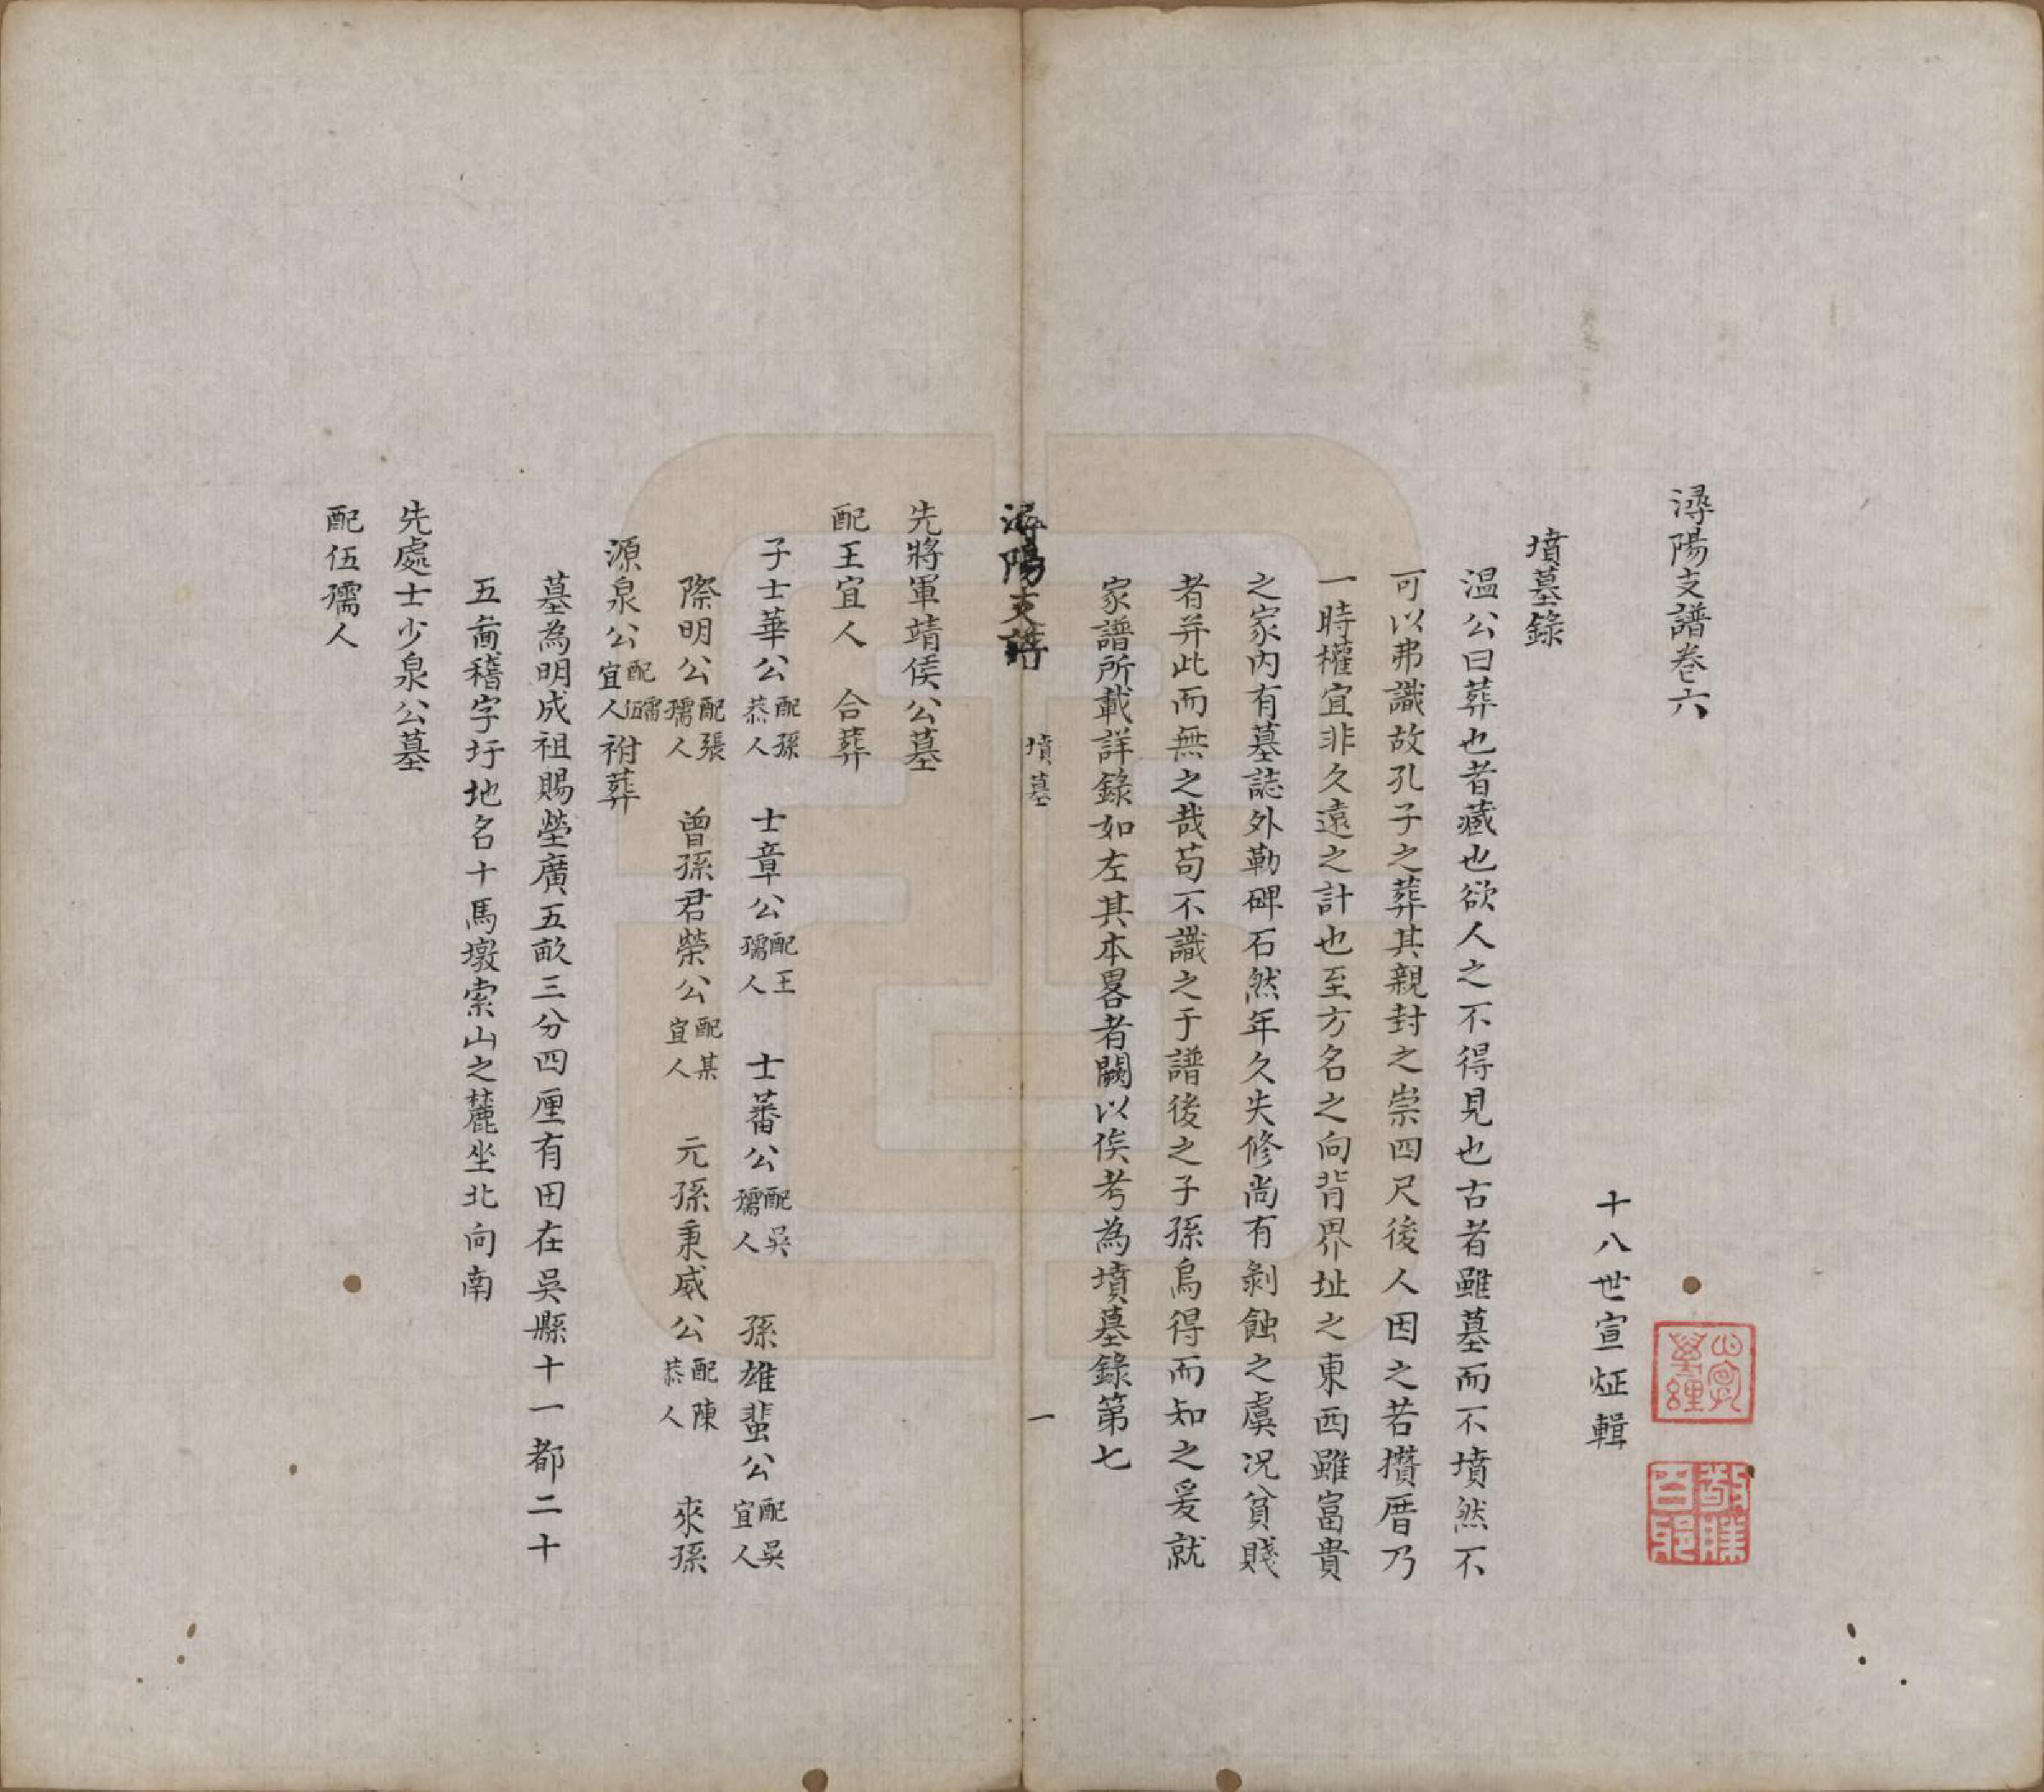 潯陽支譜卷六
十八世宣炡輯
墳墓錄
温公曰葬也者藏也欲人之不得見也古者雖墓而不墳然不
可以弗識故孔子之葬其親封之崇四尺後人因之若攢厝乃
一時權宜非久遠之計也至方名之向背界址之東西雖富貴
之家内有墓誌外勒碑石然年久失修尚有剝蝕之虞况貧賤
者并此而無之哉苟不識之于譜後之子孫烏得而知之爰就
家譜所載詳錄如左其本畧者闕以俟考為墳墓錄第七
潯陽支譜 墳墓 一
先將軍靖侯公墓
配王宜人 合葬
子士華公配孫恭人 士章公配王孺人 士蕃公配吳孺人 孫雄蜚公配吳宜人
際明公配張孺人 曾孫君榮公配某宜人 元孫秉威公配陳恭人 來孫
源泉公配伍孺宜人祔葬
墓為明成祖賜塋廣五畝三分四厘有田在吳縣十一都二十
五啚稽字圩地名十馬墩索山之麓坐北向南
先處士少泉公墓
配伍孺人